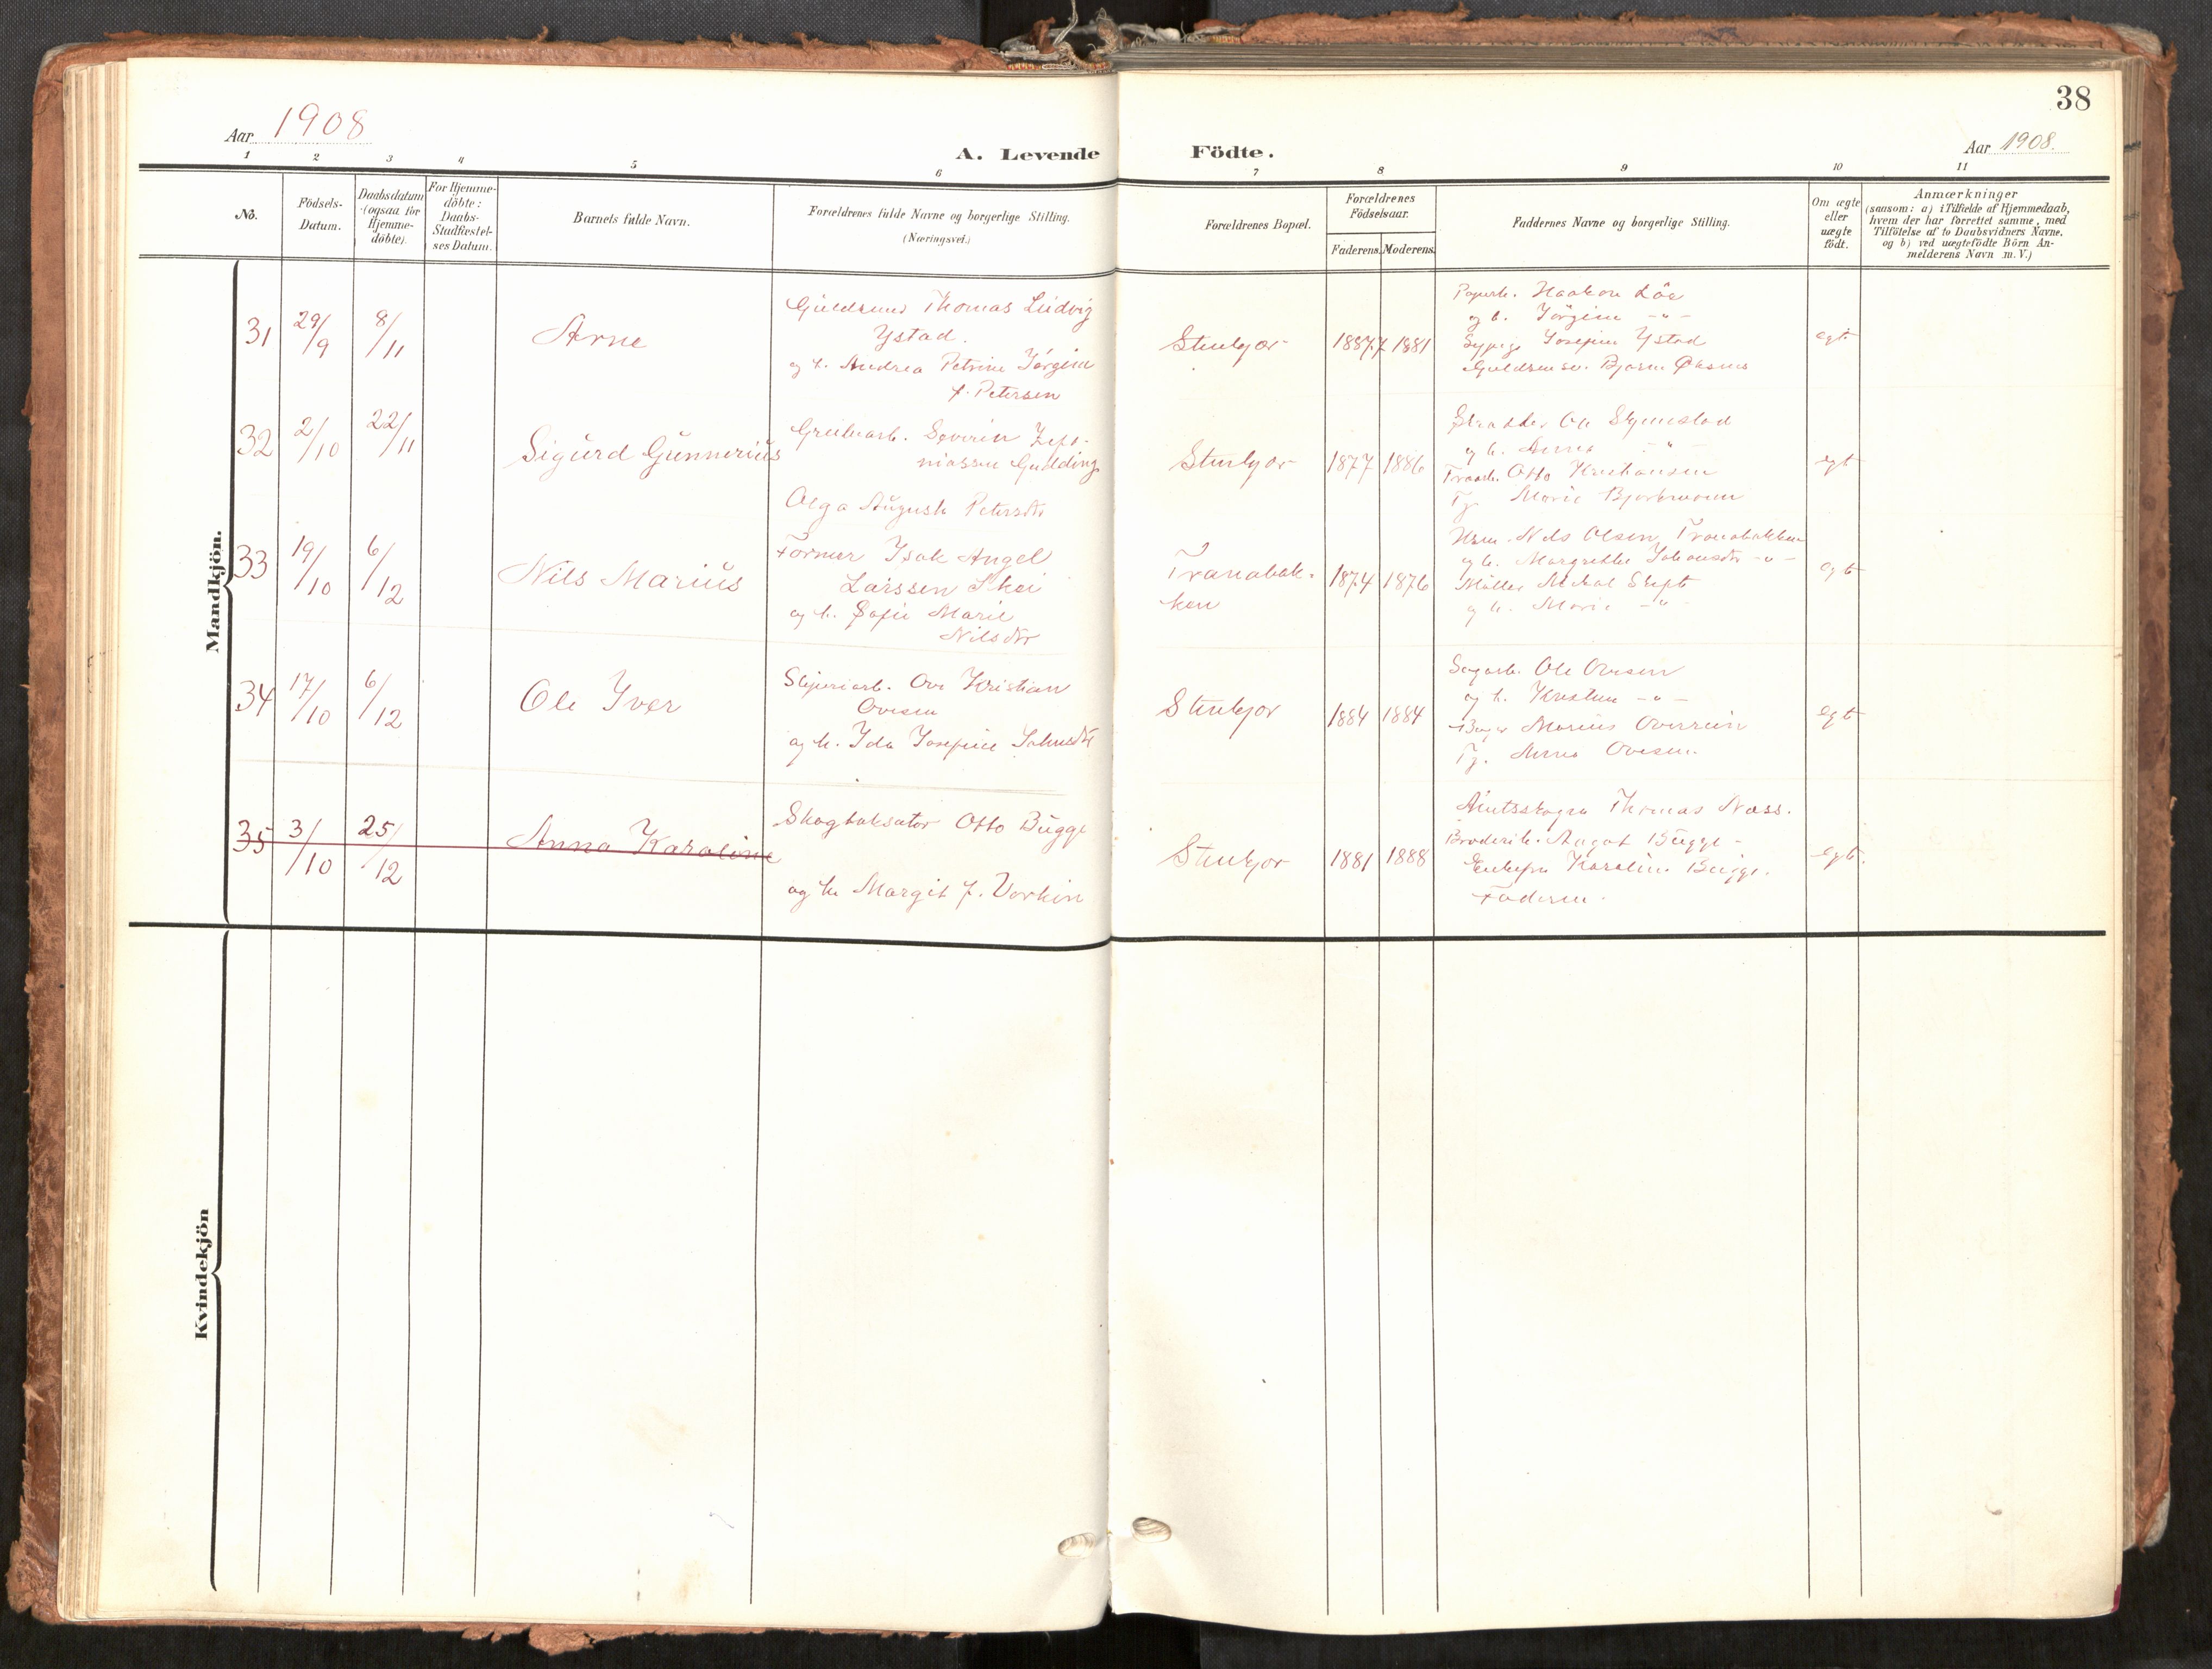 38
Aar 1908
A. Levende Födte.
Aar 1908.
1 2 3 4 5 6 7 8 9 10 11
No.
Födsels-
Datum.
Daabsdatum
(ogsaa for
Hjemme-
döbte).
For Hjemme-
döbte:
Daabs-
Stadfæstel-
ses Datum.
Barnets fulde Navn.
Forældrenes fulde Navne og borgerlige Stilling.
(Næringsvei.)
Forældrenes Bopæl.
Forældrenes
Födselsaar.
Faderens. Moderens.
Faddernes Navne og borgerlige Stilling.
Om ægte
eller
uægte
födt.
Anmærkninger
(saasom: a) i Tilfælde af Hjemmedaab,
hvem der har forrettet samme, med
Tilföielse af to Daabsvidners Navne,
og b) ved uægtefödte Börn An-
melderens Navn m. V.)
Mandkjön.
31
29/9
8/11
Arne
Guldsmed Thomas Ludvig
Ystad.
Andrea Petrine Jörgine
f. Petersen
Stenkjær
1881
Haakon Löe
og h. Jörgine -"-
Josefine Ystad
Guldsmedsv. Bjarne Öksnes
egt.
32
2/10
22/11
Sigurd Gunnerius
Severin
Olga Auguste Petersdtr
Stenkjær
1877 1886
Ole
og h. Anna -"-
Otto Kristiansen
Marie
egt
33
19/10
6/12
Nils Marius
Former Isak Angel
Larssen Skei
og h. Sofie Marie
Nilsdtr
Tranabak-
ken
1874 1876
Nils Olsen Tranabakken
og h. Margrethe Johansdtr -"-
Möller
og h. Marie -"-
egt
34
17/10
6/12
Ole Iver
Ove Kristian
Ovesen
og h. Ida Josefine Johnsdtr
Stenkjær
1884 1884
Sagarb. Ole Ovesen
og h. -"-
Marius Overrein
Tj. Anna Ovesen.
egt
35
3/10
25/12
Anna Karoline
Skogtaksator Otto Bugge
og h. Margit f.
Stenkjær
1881 1888
Thomas Næss.
Aagot Bugge -
Enkefru Karoline Bugge.
Faderen.
egt.
Kvindekjön